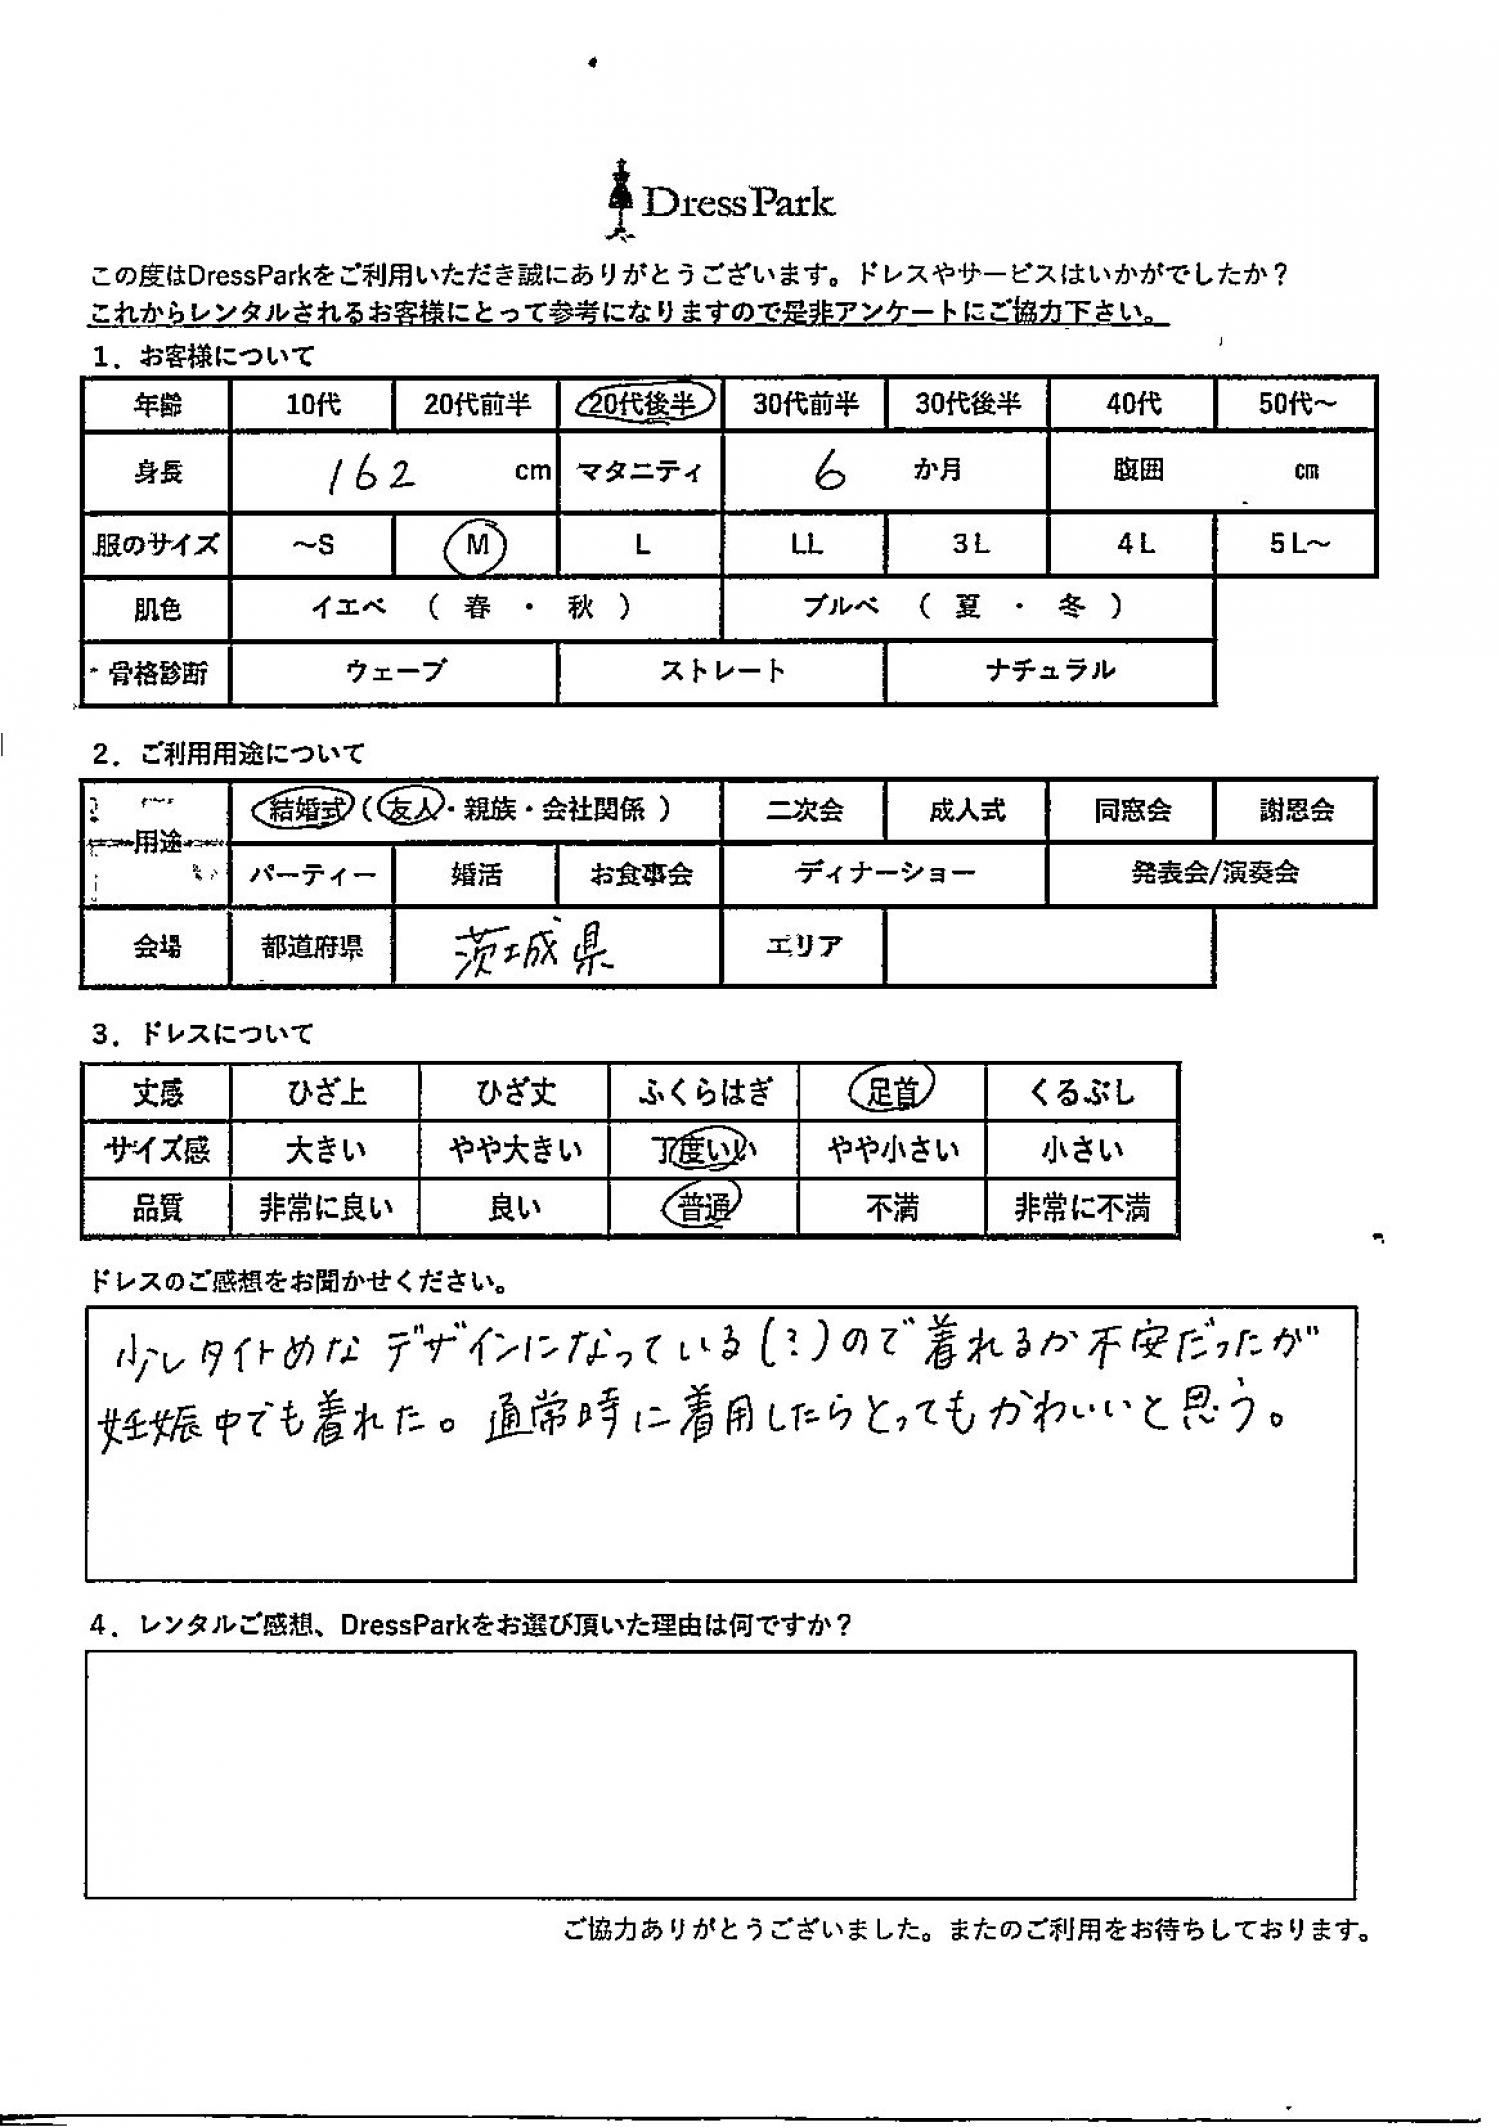 DressPark
この度はDressParkをご利用いただき誠にありがとうございます。ドレスやサービスはいかがでしたか？
これからレンタルされるお客様にとって参考になりますので是非アンケートにご協力下さい。
1．お客様について
年齢 10代 20代前半 20代後半 30代前半 30代後半 40代 50代～
身長 162 cm マタニティ 6 か月 腹囲 cm
服のサイズ ～S M L LL 3L 4L 5L～
肌色 イエベ （ 春 ・ 秋 ） ブルベ （ 夏 ・ 冬 ）
骨格診断 ウェーブ ストレート ナチュラル
2．ご利用用途について
用途 結婚式（友人・親族・会社関係 ） 二次会 成人式 同窓会 謝恩会
パーティー 婚活 お食事会 ディナーショー 発表会/演奏会
会場 都道府県 茨城県 エリア
3．ドレスについて
丈感 ひざ上 ひざ丈 ふくらはぎ 足首 くるぶし
サイズ感 大きい やや大きい 丁度いい やや小さい 小さい
品質 非常に良い 良い 普通 不満 非常に不満
ドレスのご感想をお聞かせください。
少しタイトめなデザインになっている(?)ので着れるか不安だったが
妊娠中でも着れた。通常時に着用したらとってもかわいいと思う。
4．レンタルご感想、DressParkをお選び頂いた理由は何ですか？
ご協力ありがとうございました。またのご利用をお待ちしております。